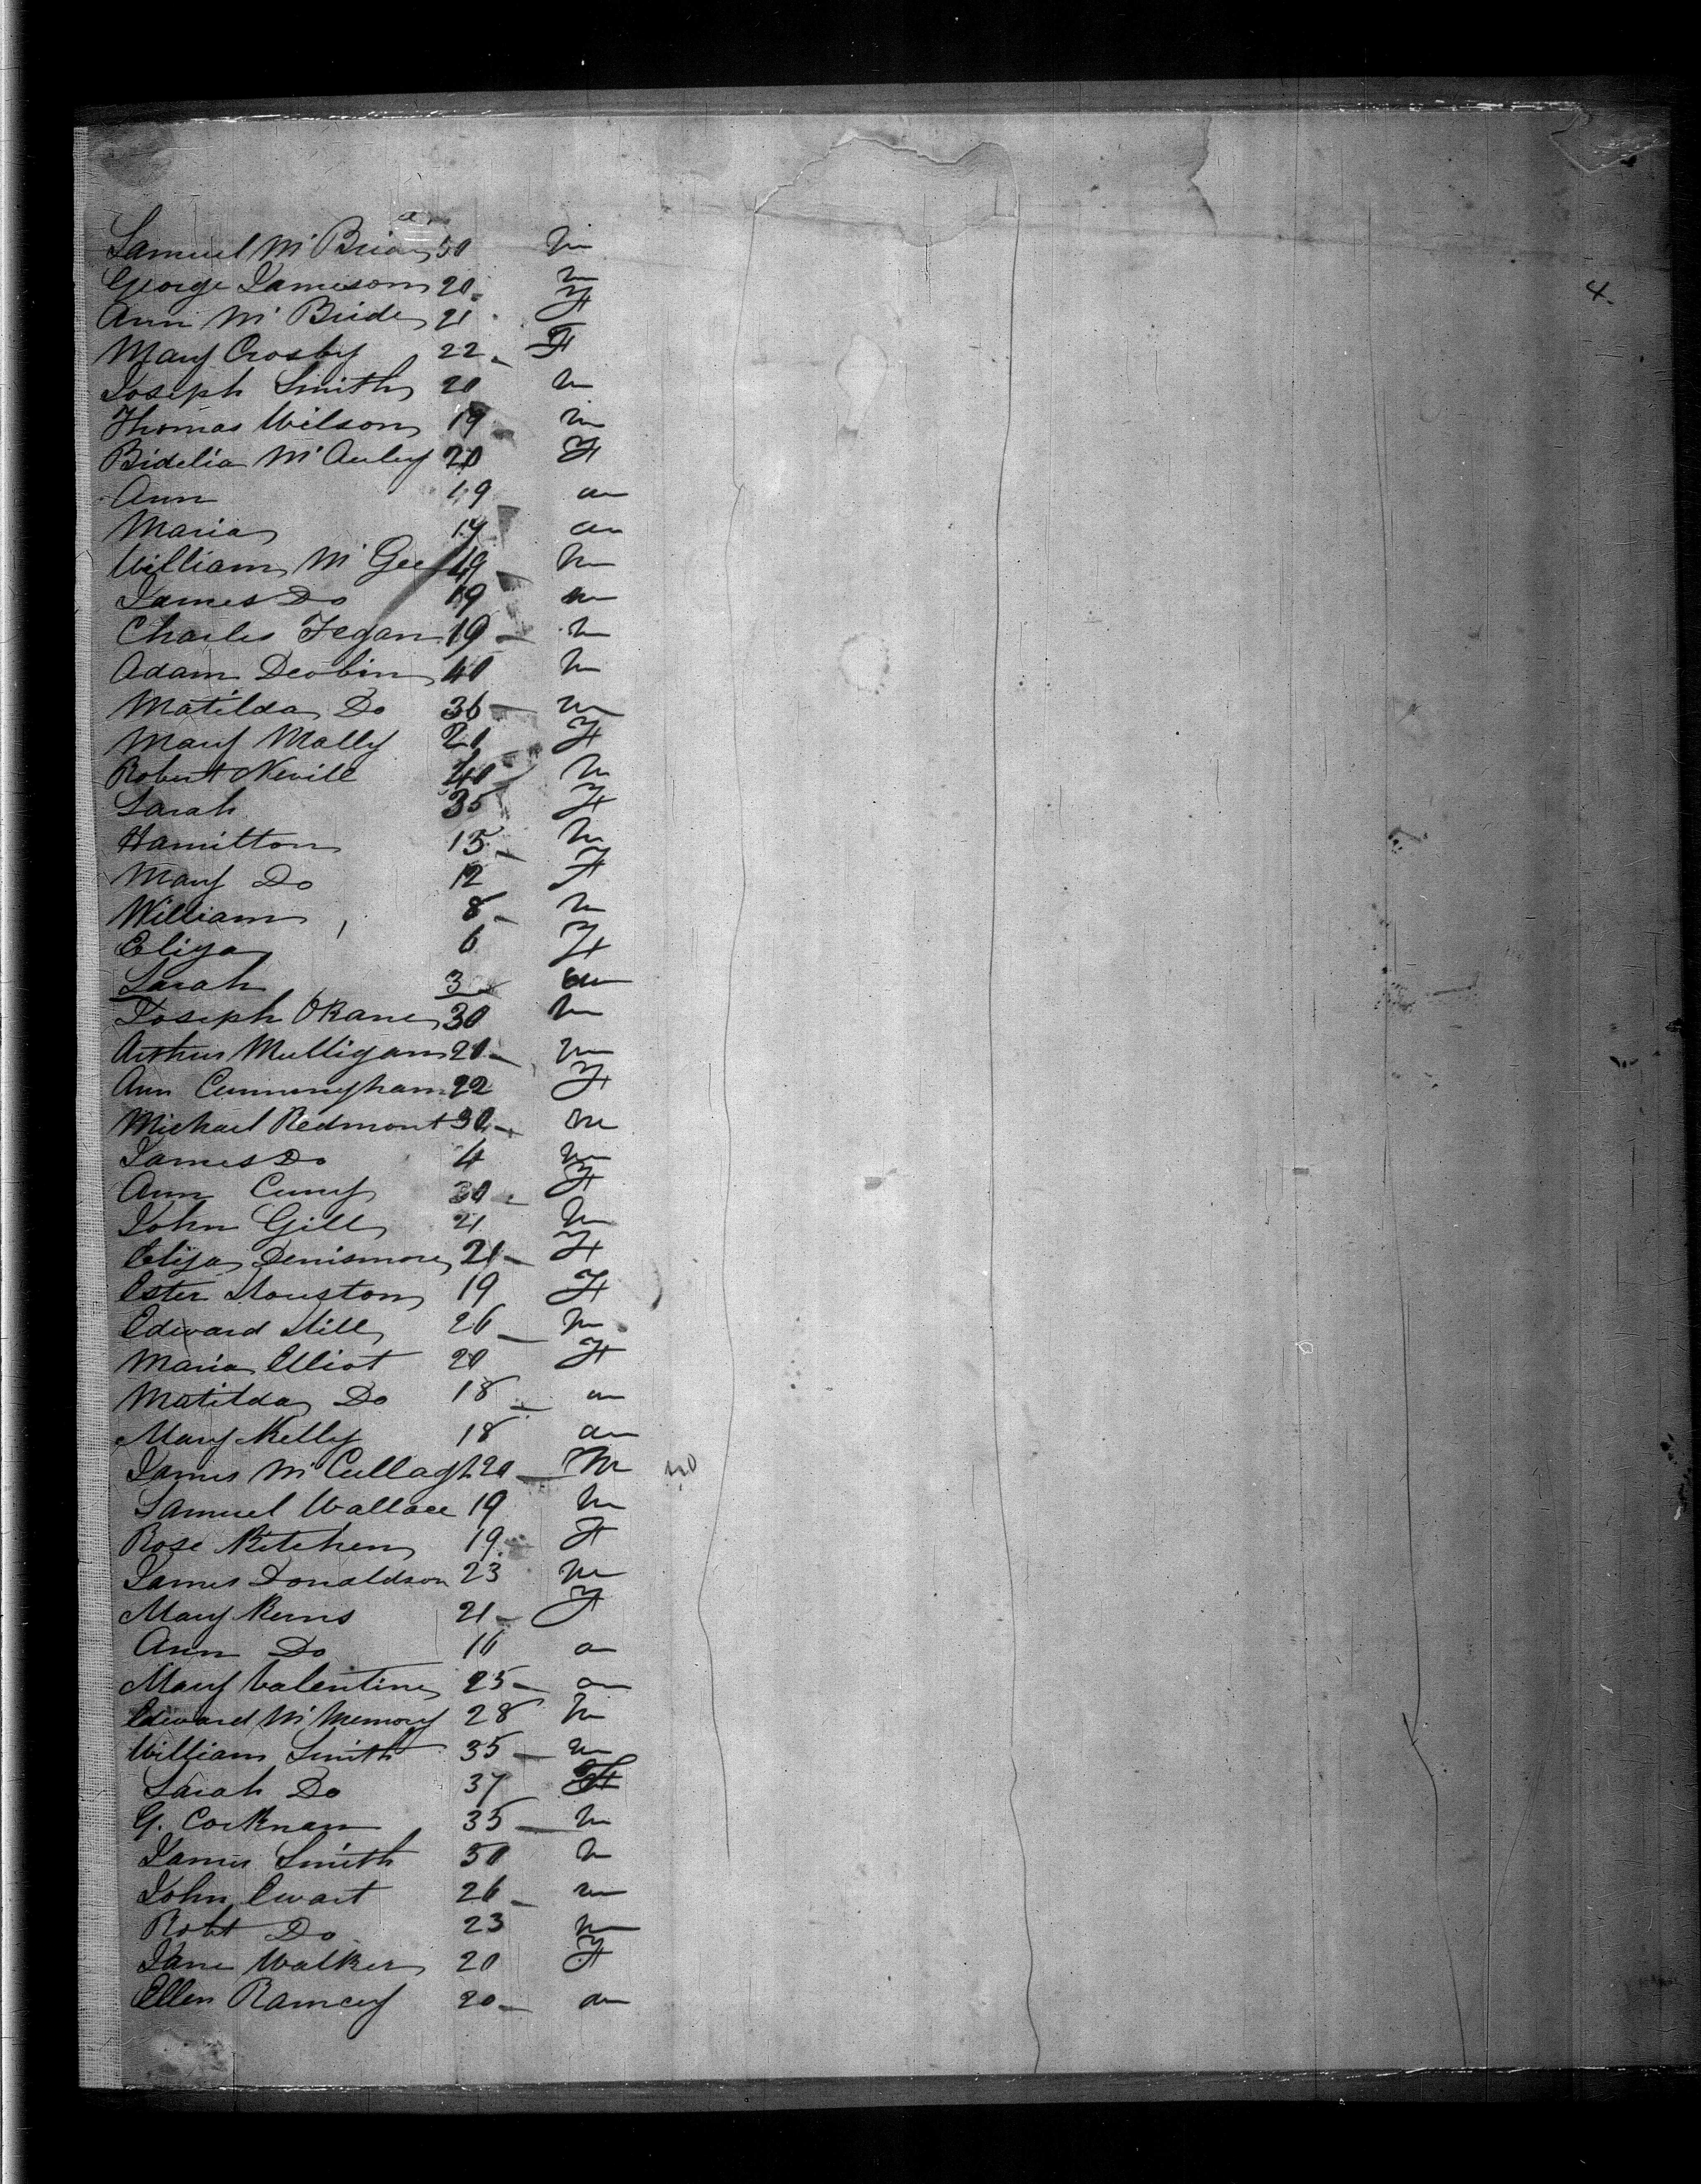 Samuel McBriar 50 M
4.
George Jamison 20 M
Ann McBride 21 F
Mary Crosby 22 F
Joseph Smith 20 M
Thomas Wilson 19 M
Bidelia McAuley 20 F
Ann 19 "
Maria 17 "
William McGee 49 M
James Do 19 M
Charles Fegan 19 M
Adam Deobin 40 M
Matilda Do 36 M
Mary Mally 20 F
Robert Nevill 40 M
Sarah 35 F
Hamilton 15 M
Mary Do 12 F
William 8 M
Eliza 6 F
Sarah 3 "
Joseph OKane 30 M
Arthur Mulligan 20 M
Ann Cunningham 22 F
Michael Redmont 30 M
James Do 4 M
Ann Curry 30 F
John Gill 21 M
Eliza Denismore 21 F
Ester Houston 19 F
Edward Hill 26 M
Maria Elliot 20 F
Matilda Do 18 "
Mary Kelly 18 "
James McCullagh 20 M
Samuel Wallace 19 M
Rose Kitchen 19 F
James Donaldson 23 M
Mary Kerns 21 F
Ann Do 16 "
Mary Valentine 25 "
Edward McMemory 28 M
William Smith 35 M
Sarah Do 37 F
G. Corknan 35 M
James Smith 50 M
John Ewart 26 M
Robt Do 23 M
Jane Walker 20 F
Ellen Ramcey 20 "